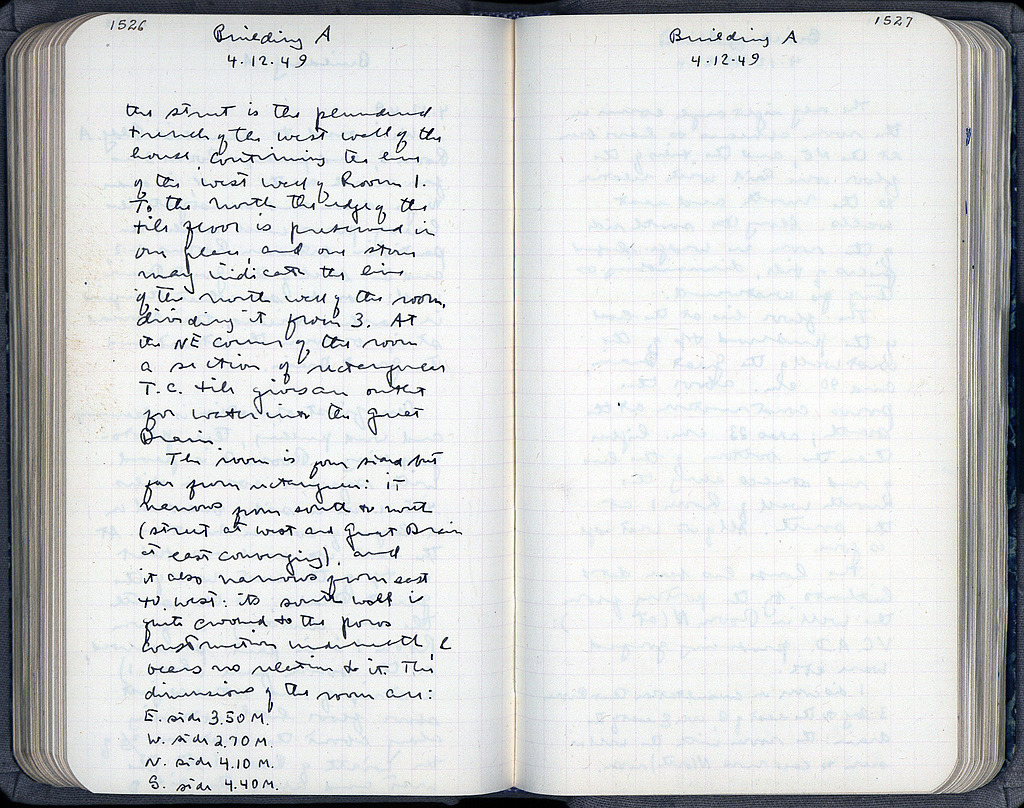 1526
Building A
4.12.49
the street is the plundered
trench of the west wall of the
house continuing the line
of the west wall of Room 1.
To the north the edge of the
tile floor is preserved in
one place, and one stone
may indicate the line
of the north wall of the room,
dividing it from 3. At
the NE corner of the room
a section of rectangular
T.C. tile gives an outlet
for water into the Great
Drain.
The room is four sided but
far from rectangular: it
narrows from south to north
(street at west and Great Drain
at east converging), and
it also narrows from east
to west: its south wall is
quite crooked to the poros
construction underneath &
bears no relation to it. The
dimensions of the room are:
E. side 3.50 M.
W. side 2.70 M.
N. side 4.10 M.
S. side 4.40 M.
1527
Building A
4.12.49